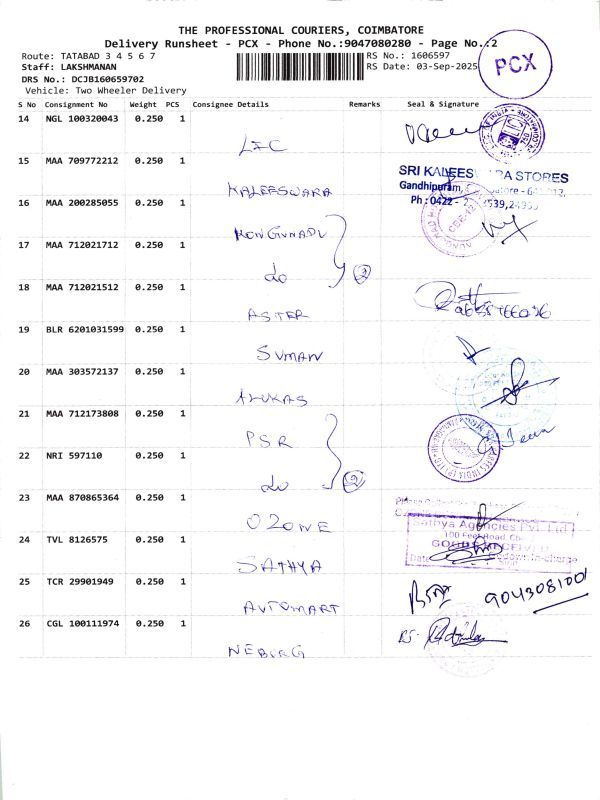 THE PROFESSIONAL COURIERS, COIMBATORE
Delivery Runsheet - PCX - Phone No.:9047080280 - Page No.:2
PCX
Route: TATABAD 3 4 5 6 7
Staff: LAKSHMANAN
DRS No.: DCJB160659702
Vehicle: Two Wheeler Delivery
RS No.: 1606597
RS Date: 03-Sep-2025
S No Consignment No Weight PCS Consignee Details Remarks Seal & Signature
14 NGL 100320043 0.250 1
LIC
15 MAA 709772212 0.250 1
KALEESWARA
SRI KALEESWARA STORES
Gandhipuram,
Ph : 0422 -
16 MAA 200285055 0.250 1
KONGUNADU
17 MAA 712021712 0.250 1
do 2
18 MAA 712021512 0.250 1
ASTER
19 BLR 6201031599 0.250 1
SUMAN
20 MAA 303572137 0.250 1
ALUKAS
21 MAA 712173808 0.250 1
PSR
22 NRI 597110 0.250 1
do 2
23 MAA 870865364 0.250 1
OZONE
24 TVL 8126575 0.250 1
SATHYA
Sathya Agencies Pvt. Ltd
100 Feet Road,
25 TCR 29901949 0.250 1
AUTOMART
26 CGL 100111974 0.250 1
NEBURG